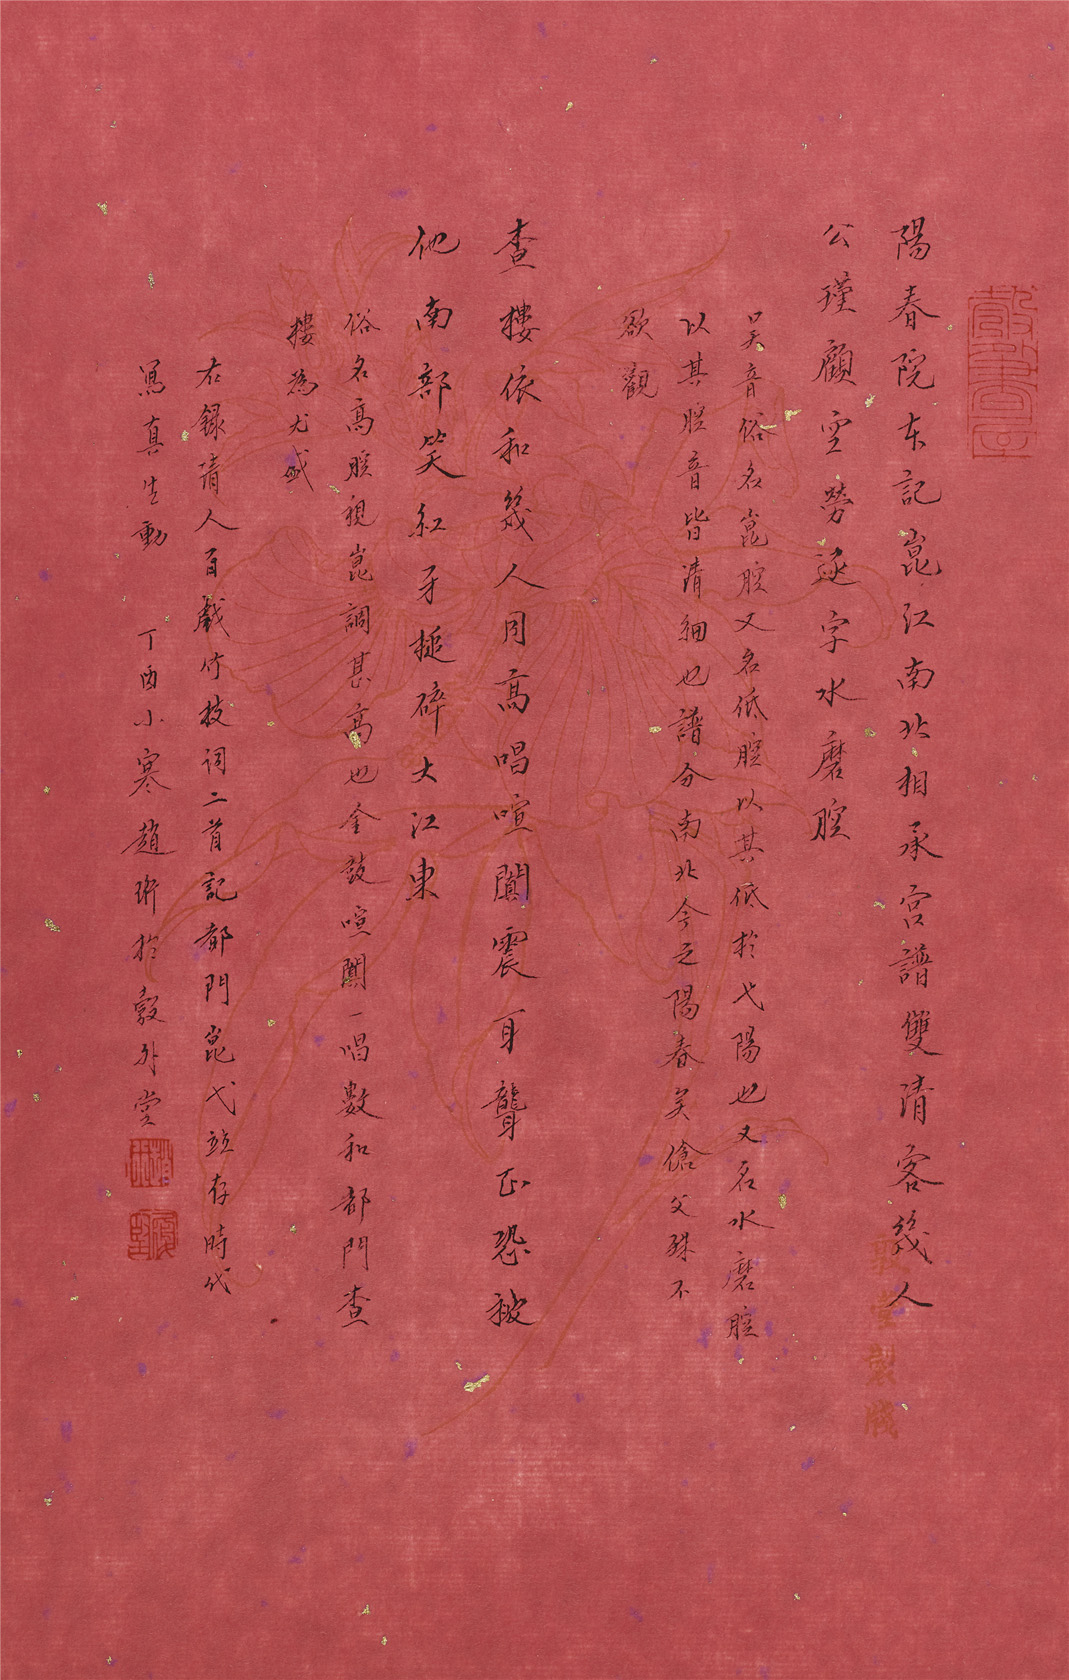 陽春院本記崑江南北相承宮譜雙清客幾人
公瑾顧空勞逐字水磨腔
吴音俗名崑腔又名低腔以其低於弋陽也又名水磨腔
以其腔音皆清細也譜分南北今之陽春矣傖父殊不
欲觀
查樓依和幾人同高唱喧闐震耳聾正恐被
他南部笑紅牙搥碎大江東
俗名高腔視崑調甚高也金鼓喧闐一唱數和都門查
樓為尤盛
右録清人百戲竹枝词二首記都門崑弋竝存時代
寫真生動 丁酉小寒趙珩於彀外堂
堂製牋